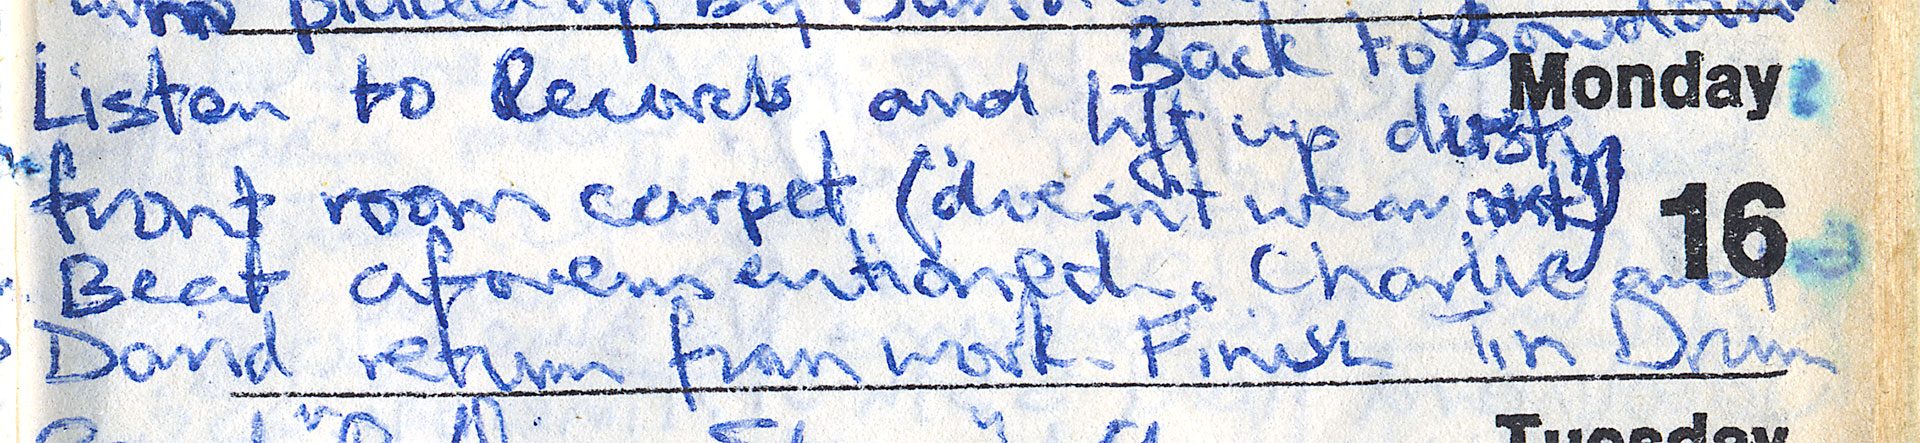 picked up by
Back to
Monday
Listen to Records and lift up dusty
16
front room carpet (doesn't wear out)
Beat aforementioned. Charlie and
David return from work. Finish Tin Drum
Tuesday